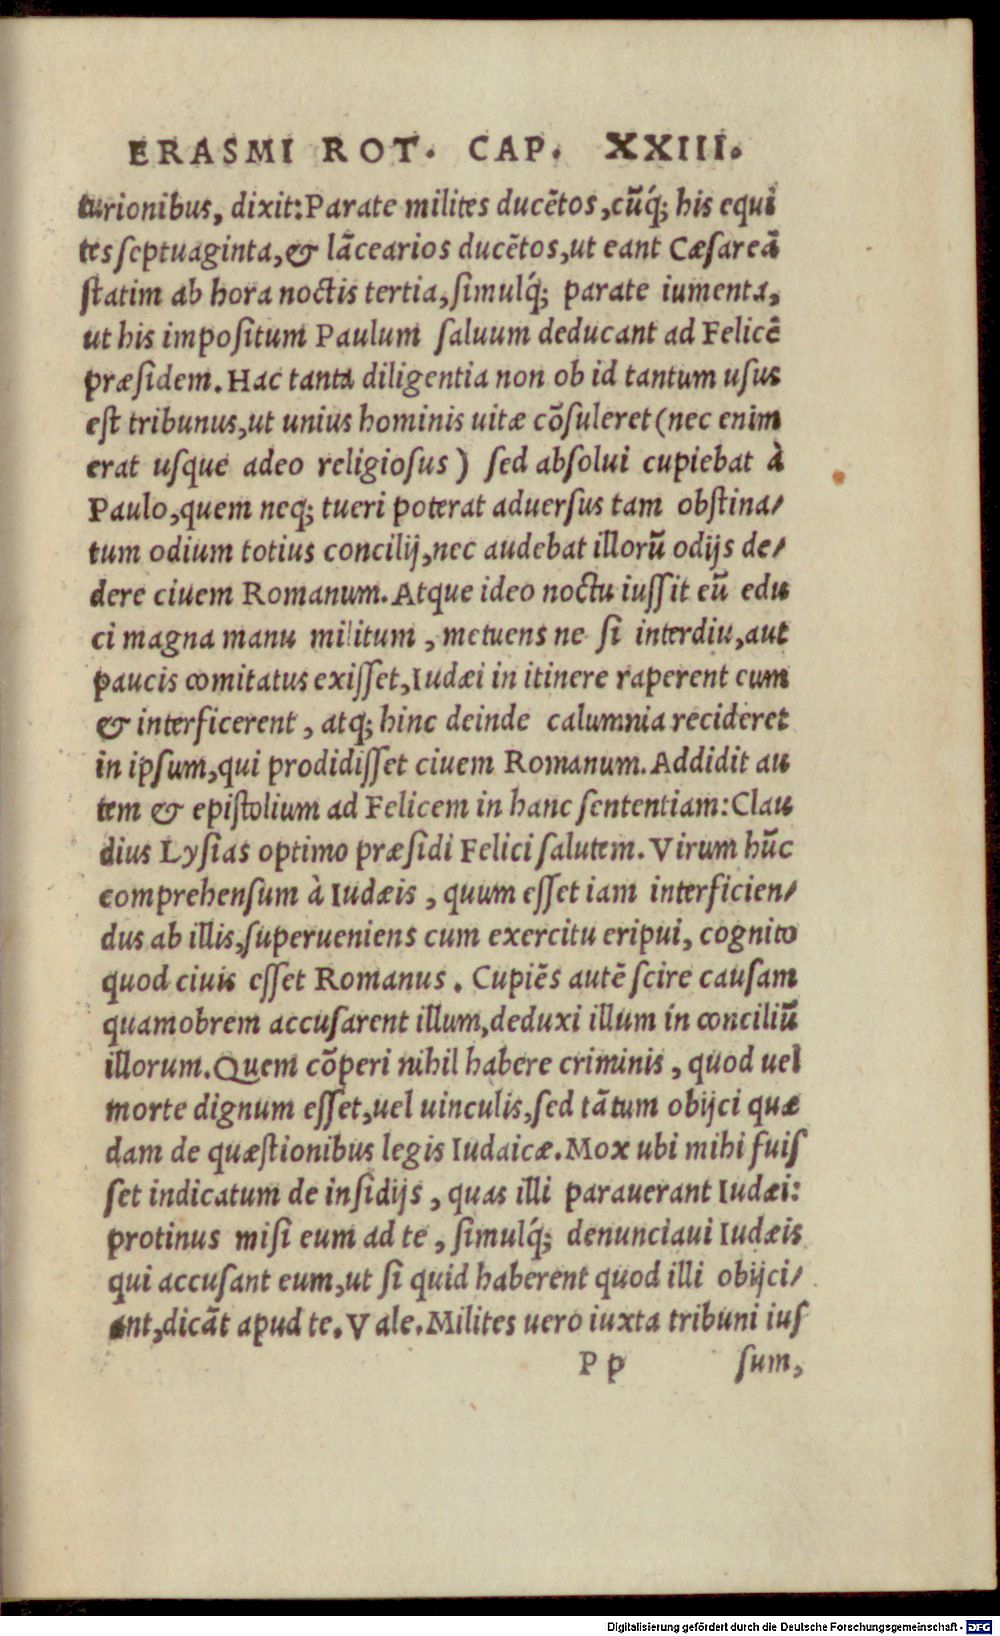 ERASMI ROT. CAP. XXIII.
turionibus, dixit: Parate milites ducẽtos, cũq́; his equi
tes septuaginta, & lãcearios ducẽtos, ut eant Cæsareã
statim ab hora noctis tertia, simulq́; parate iumenta,
ut his impositum Paulum saluum deducant ad Felicẽ
præsidem. Hac tanta diligentia non ob id tantum usus
est tribunus, ut unius hominis uitæ cõsuleret (nec enim
erat usque adeo religiosus) sed absolui cupiebat à
Paulo, quem neq; tueri poterat aduersus tam obstina/
tum odium totius concilij, nec audebat illorũ odijs de/
dere ciuem Romanum. Atque ideo noctu iussit eũ edu
ci magna manu militum, metuens ne si interdiu, aut
paucis comitatus exisset, Iudæi in itinere raperent eum
& interficerent, atq; hinc deinde calumnia recideret
in ipsum, qui prodidisset ciuem Romanum. Addidit au
tem & epistolium ad Felicem in hanc sententiam: Clau
dius Lysias optimo præsidi Felici salutem. Virum hũc
comprehensum à Iudæis, quum esset iam interficien/
dus ab illis, superueniens cum exercitu eripui, cognito
quod ciuis esset Romanus. Cupiẽs autẽ scire causam
quamobrem accusarent illum, deduxi illum in conciliũ
illorum. Quem cõperi nihil habere criminis, quod uel
morte dignum esset, uel uinculis, sed tãtum obijci quæ
dam de quæstionibus legis Iudaicæ. Mox ubi mihi fuis
set indicatum de insidijs, quas illi parauerant Iudæi:
protinus misi eum ad te, simulq́; denunciaui Iudæis
qui accusant eum, ut si quid haberent quod illi obijci/
ant, dicãt apud te. Vale. Milites uero iuxta tribuni ius
Pp sum,
Digitalisierung gefördert durch die Deutsche Forschungsgemeinschaft - DFG